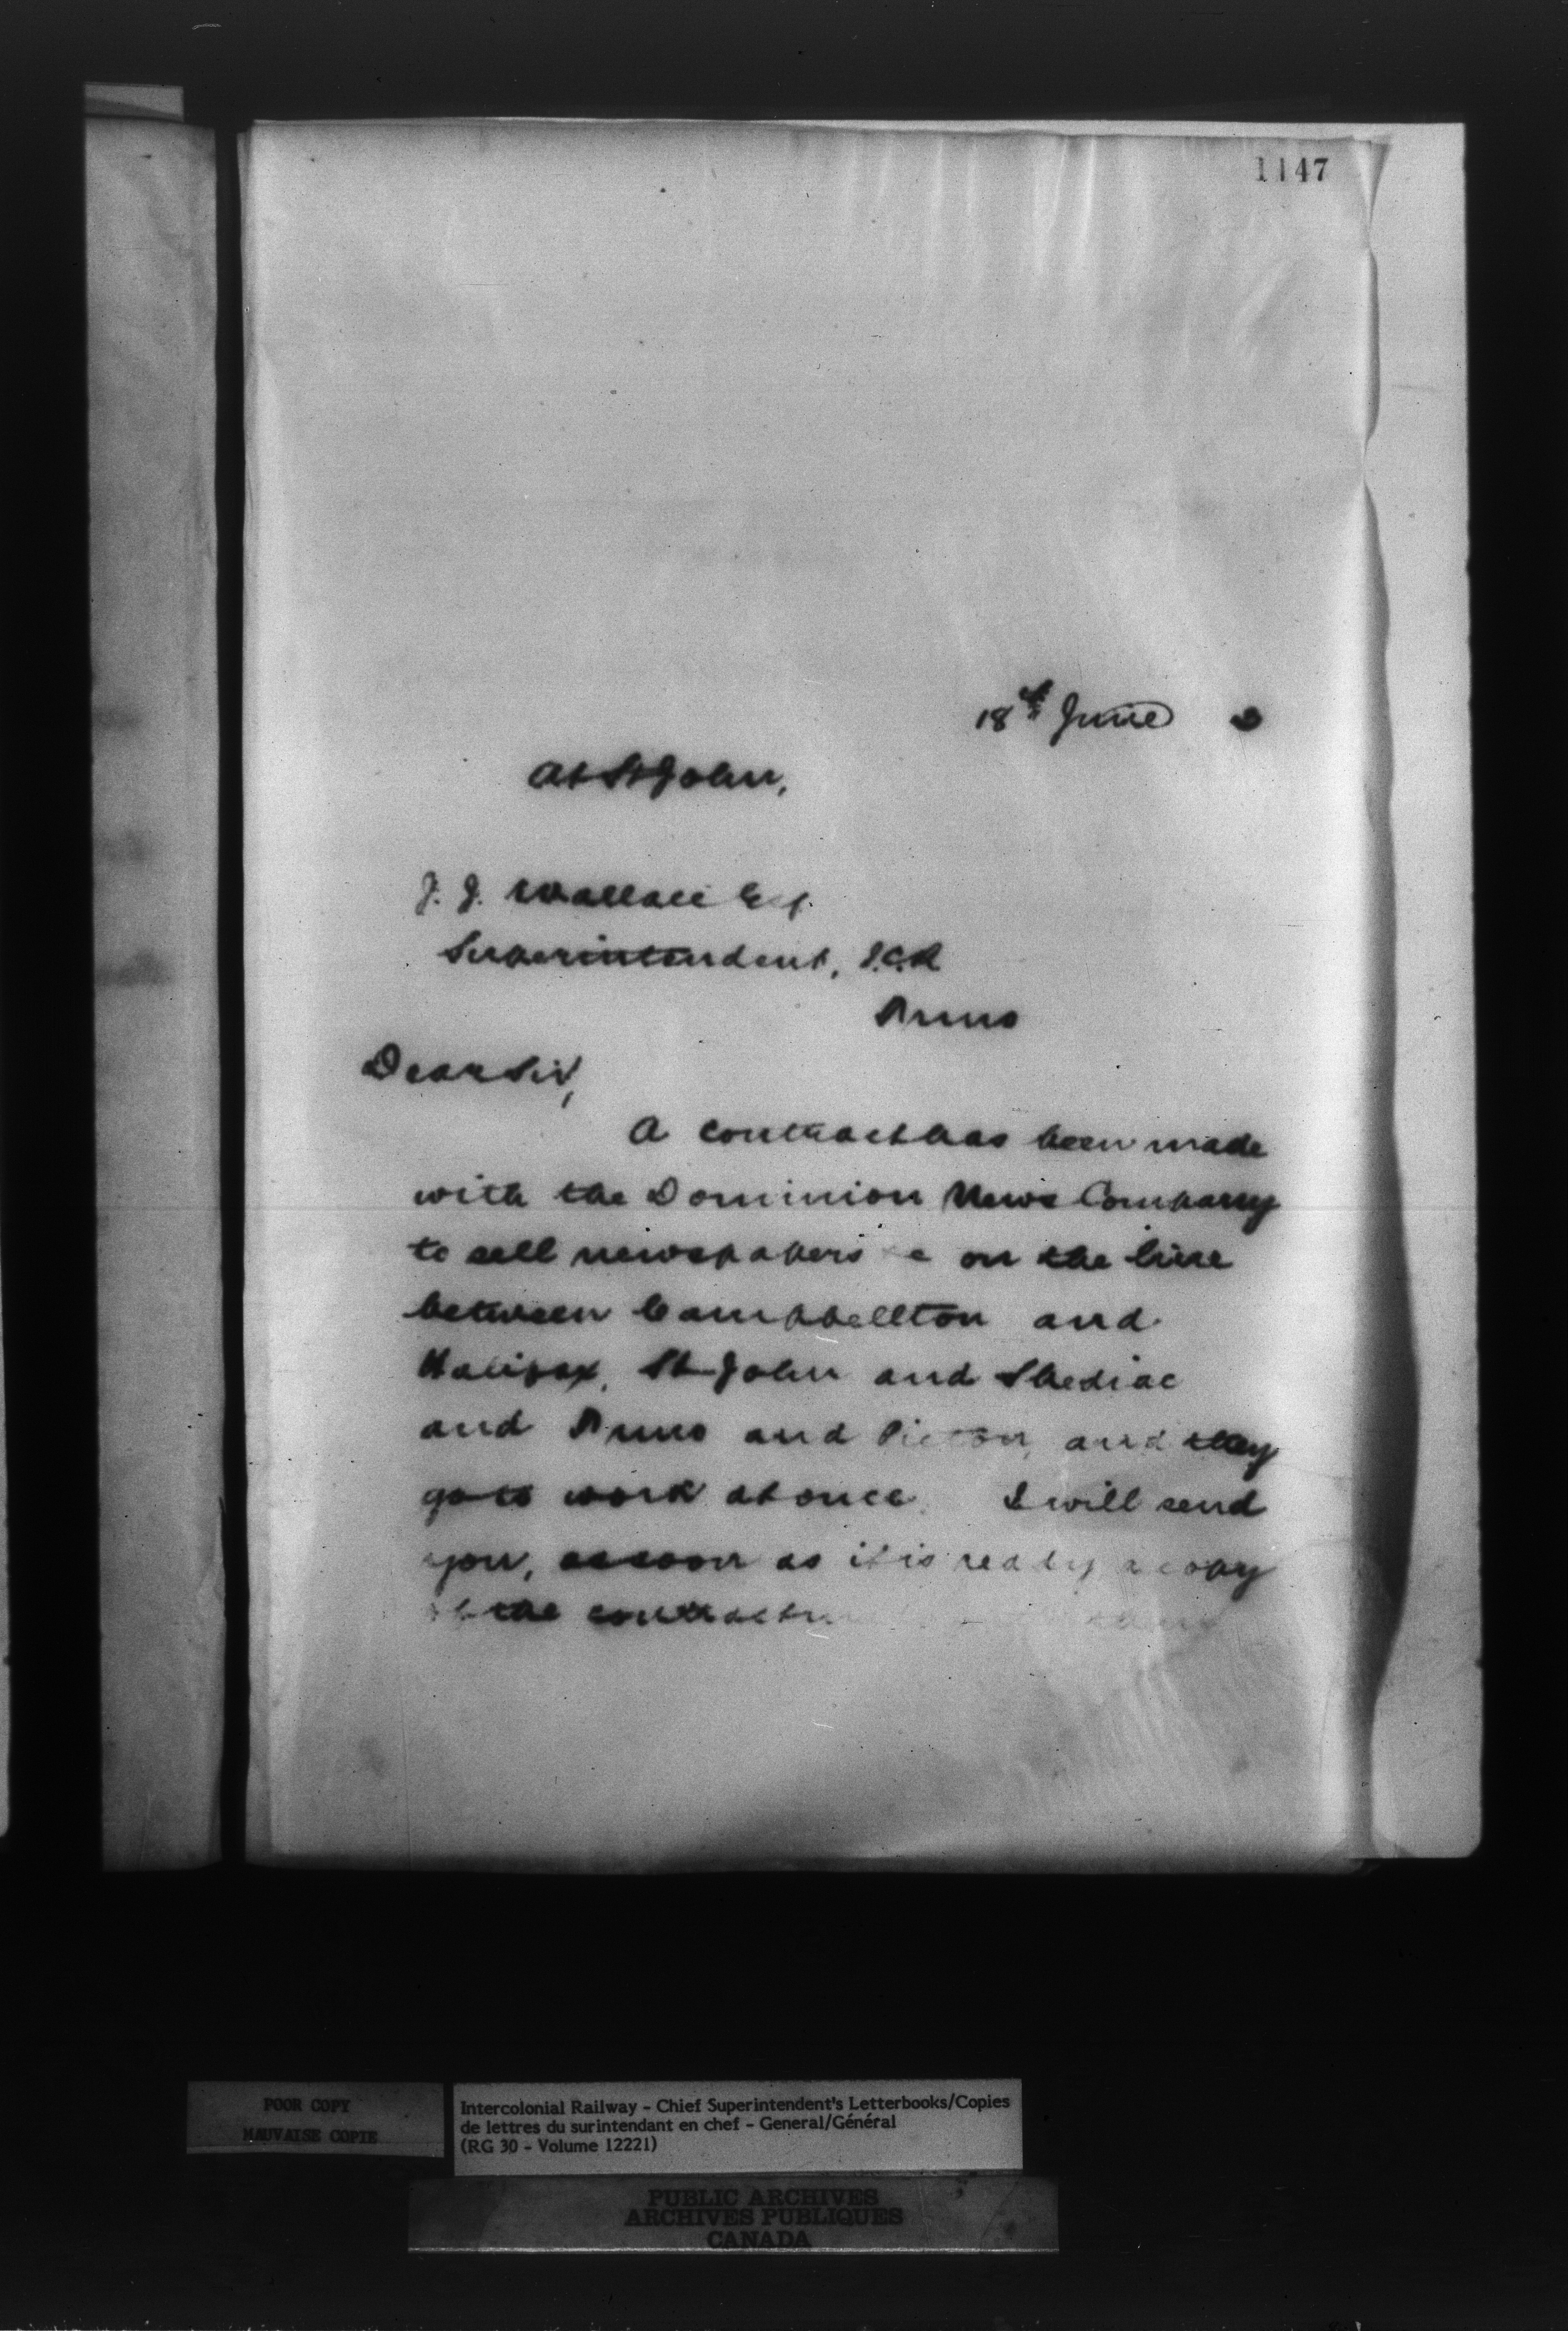 1147
18th June
At St John,
J. J. Wallace Esq.
Superintendent, I.C.R
Truro
Dear Sir,
A contract has been made
with the Dominion News Company
to sell newspapers &c on the line
between Campbellton and
Halifax, St John and Shediac
and Truro and Pictou, and they
go to work at once. I will send
you, as soon as it is ready a copy
of the contract
POOR COPY
MAUVAISE COPIE
Intercolonial Railway - Chief Superintendent's Letterbooks/Copies
de lettres du surintendant en chef - General/Général
(RG 30 - Volume 12221)
PUBLIC ARCHIVES
ARCHIVES PUBLIQUES
CANADA